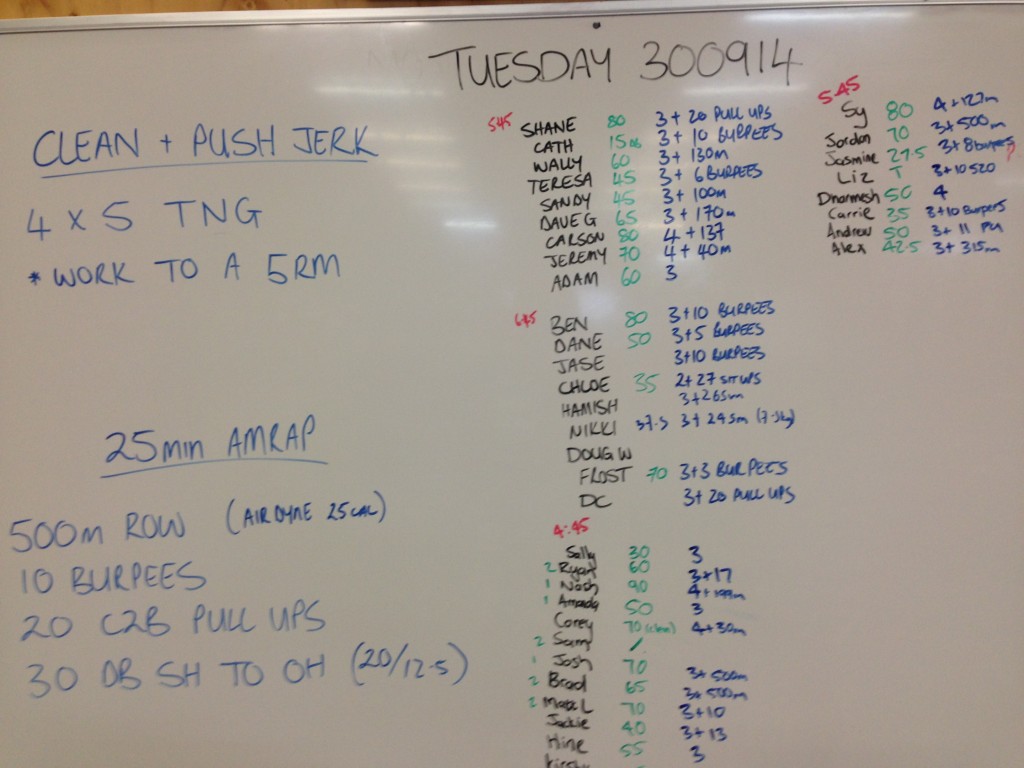 TUESDAY 300914
CLEAN + PUSH JERK
4 x 5 TNG
* WORK TO A 5RM
25min AMRAP
500m ROW (AIRDYNE 25 CAL)
10 BURPEES
20 C2B PULL UPS
30 DB SH TO OH (20/12.5)
545
SHANE 80 3 + 20 PULL UPS
CATH 15 3 + 10 BURPEES
WALLY 60 3 + 130m
TERESA 45 3 + 6 BURPEES
SANDY 45 3 + 100m
DAVE G 65 3 + 170m
CARSON 80 4 + 137
JEREMY 70 4 + 40m
ADAM 60 3
645
BEN 80 3+10 BURPEES
DANE 50 3+5 BURPEES
JASE 3+10 BURPEES
CHLOE 35 2+27 SIT UPS
HAMISH 3+265m
NIKKI 37.5 3+245m
DOUG W
FROST 70 3+3 BURPEES
DC 3+20 PULL UPS
4:45
Sally 30 3
2 Ryan 60 3+17
1 Nash 90 4+199m
1 Amanda 50 3
Corey 70 (clean) 4+30m
2 Sam /
1 Josh 70
2 Brad 65 3+500m
2 Matt L 70 3+500m
Jackie 40 3+10
Hine 55 3+13
3
545
Sy 80 4+127m
Jordon 70 3+500m
Jasmine 27.5 3+8 burpees
Liz T 3+10 S20
Dharmesh 50 4
Carrie 35 3+10 Burpees
Andrew 50 3+11 PU
Alex 42.5 3+315m